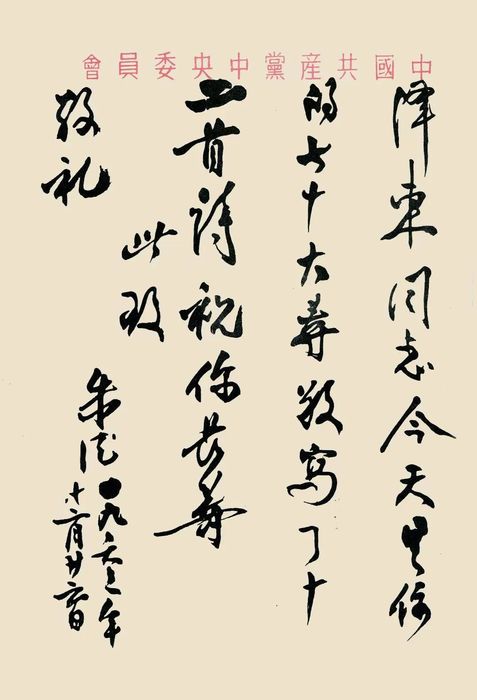 中國共產黨中央委員會
澤東同志今天是你
的七十大壽敬寫了十
二首詩祝你長壽
此致
敬礼
朱德 一九六三年
十二月廿六日